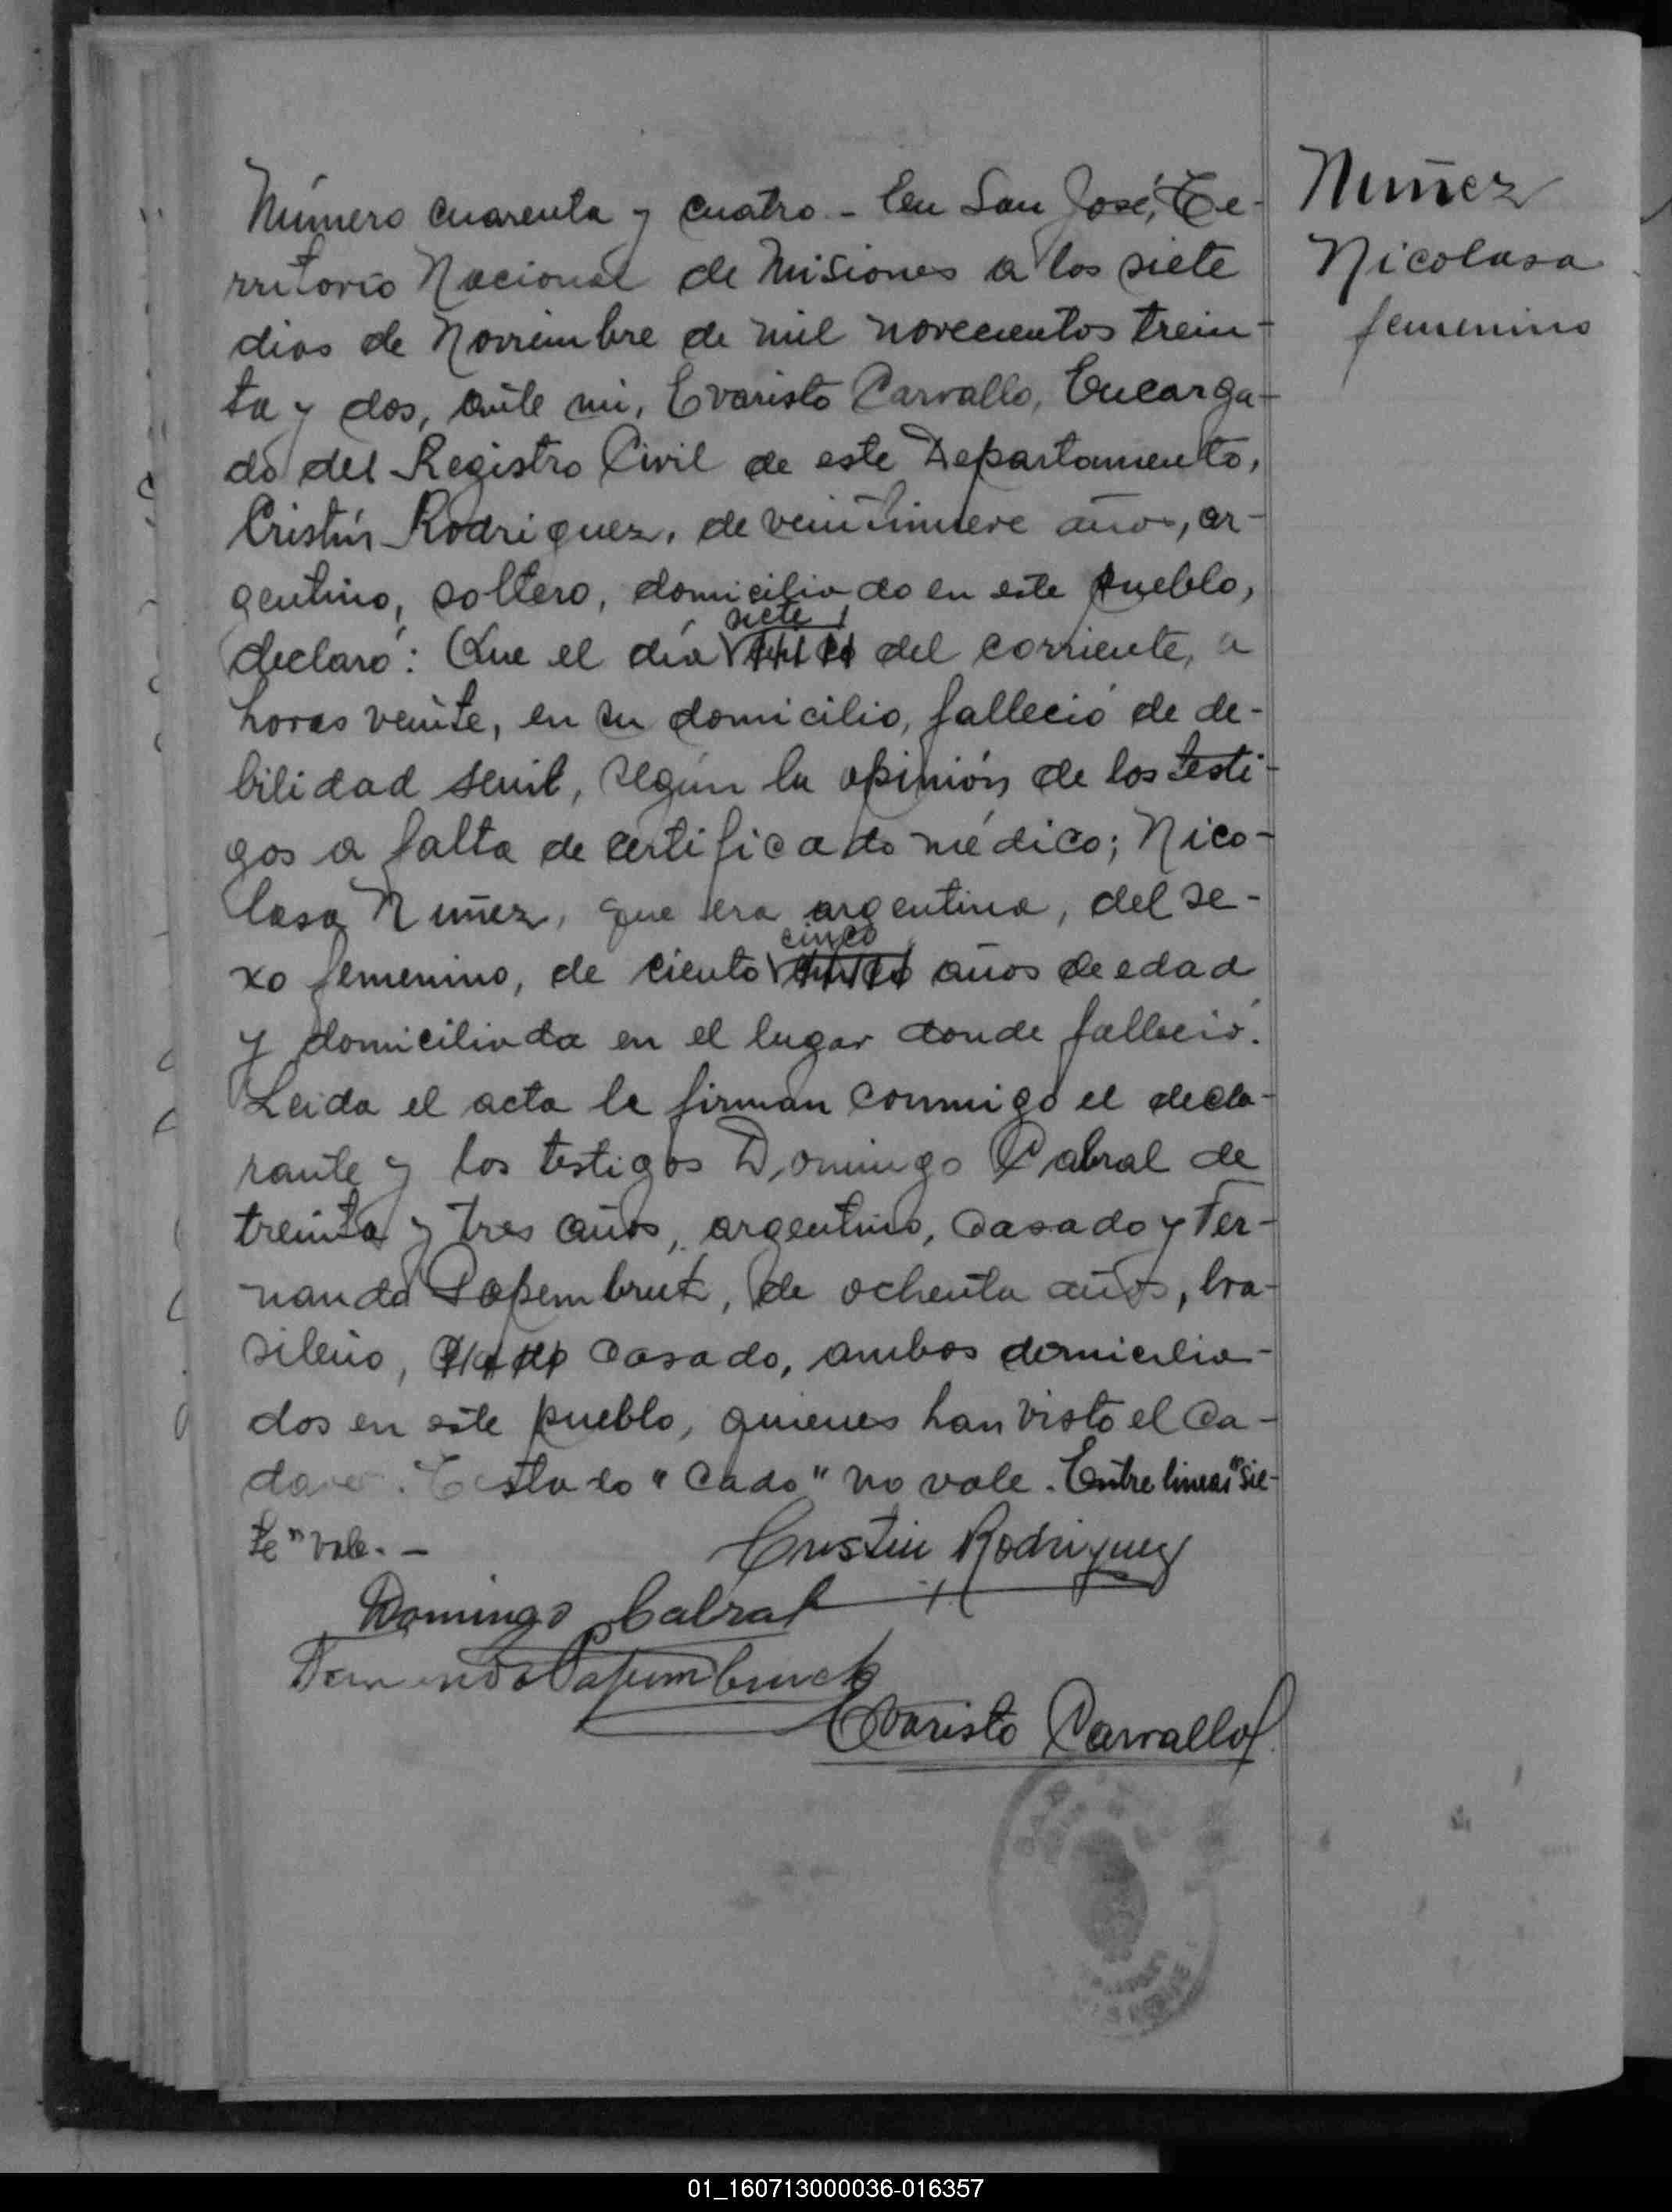 Número cuarenta y cuatro - En San José, Te-
rritorio Nacional de Misiones a los siete
dias de Noviembre de mil novecientos trein-
ta y dos, ante mi, Evaristo Carvallo, Encarga-
do del Registro Civil de este Departamento,
Cristín Rodriguez, de veintinueve años, ar-
gentino, soltero, domiciliado en este pueblo,
siete
declaró: Que el día del corriente, a
horas veinte, en su domicilio, falleció de de-
bilidad senil, según la opinión de los testi-
gos a falta de certificado médico; Nico-
lasa Nuñez, que era argentina, del se-
cinco
xo femenino, de ciento años de edad
y domiciliada en el lugar donde falleció.
Leida el acta la firman conmigo el decla-
rante y los testigos Domingo Cabral de
treinta y tres años, argentino, casado y Fer-
nando Papembrut, de ochenta años, bra-
sileño, casado, ambos domicilia-
dos en este pueblo, quienes han visto el ca-
daver. Testado "Cado" no vale. Entre lineas "sie-
te" vale. -
Cristin Rodriguez
Domingo Cabral
Fernando Papembruck
Evaristo Carvallo
Nuñez
Nicolasa
femenino
01_160713000036-016357